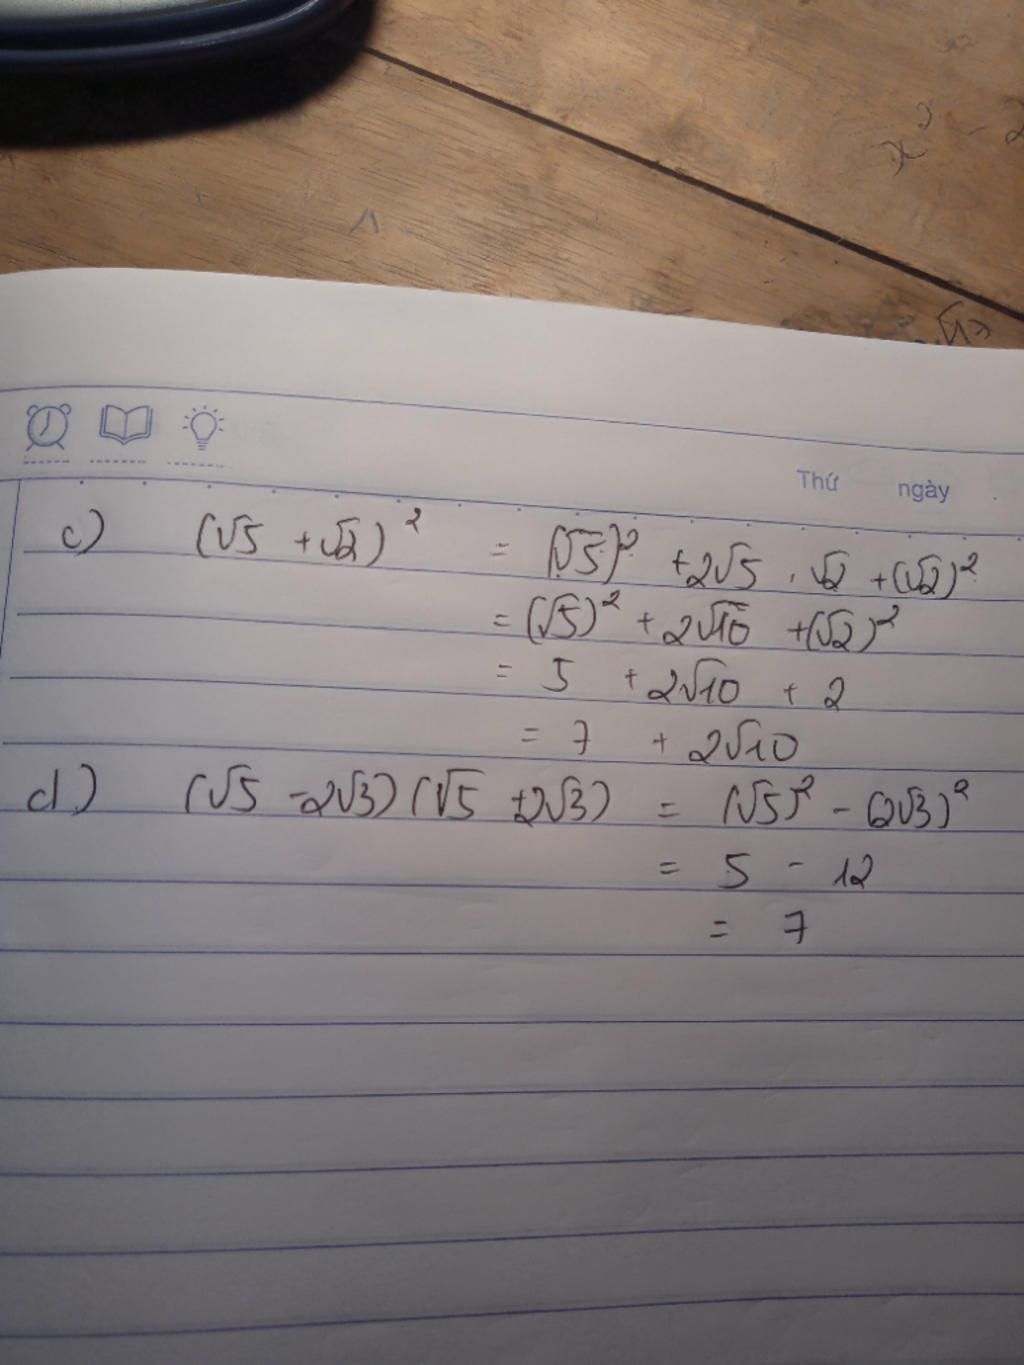 x²
Thứ ngày
c) (√5 + √2)² = (√5)² + 2√5 . √2 + (√2)²
= (√5)² + 2√10 + (√2)²
= 5 + 2√10 + 2
= 7 + 2√10
d) (√5 - 2√3)(√5 + 2√3) = (√5)² - (2√3)²
= 5 - 12
= 7